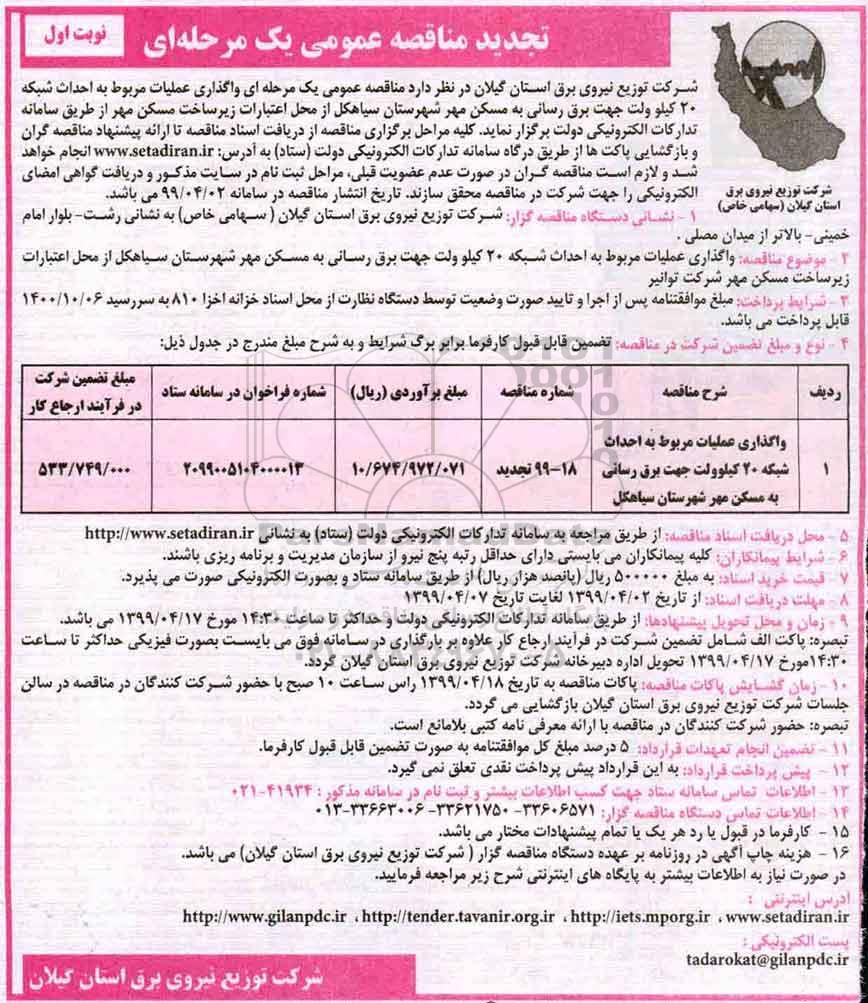 تجدید مناقصه عمومی یک مرحله‌ای
نوبت اول
شرکت توزیع نیروی برق
استان گیلان (سهامی خاص)
شرکت توزیع نیروی برق استان گیلان در نظر دارد مناقصه عمومی یک مرحله ای واگذاری عملیات مربوط به احداث شبکه
۲۰ کیلو ولت جهت برق رسانی به مسکن مهر شهرستان سیاهکل از محل اعتبارات زیرساخت مسکن مهر از طریق سامانه
تدارکات الکترونیکی دولت برگزار نماید. کلیه مراحل برگزاری مناقصه از دریافت اسناد مناقصه تا ارائه پیشنهاد مناقصه گران
و بازگشایی پاکت ها از طریق درگاه سامانه تدارکات الکترونیکی دولت (ستاد) به آدرس: www.setadiran.ir انجام خواهد
شد و لازم است مناقصه گران در صورت عدم عضویت قبلی، مراحل ثبت نام در سایت مذکور و دریافت گواهی امضای
الکترونیکی را جهت شرکت در مناقصه محقق سازند. تاریخ انتشار مناقصه در سامانه ۹۹/۰۴/۰۲ می باشد.
۱ - نشانی دستگاه مناقصه گزار: شرکت توزیع نیروی برق استان گیلان ( سهامی خاص) به نشانی رشت- بلوار امام
خمینی- بالاتر از میدان مصلی .
۲ - موضوع مناقصه: واگذاری عملیات مربوط به احداث شبکه ۲۰ کیلو ولت جهت برق رسانی به مسکن مهر شهرستان سیاهکل از محل اعتبارات
زیرساخت مسکن مهر شرکت توانیر
۳ - شرایط پرداخت: مبلغ موافقتنامه پس از اجرا و تایید صورت وضعیت توسط دستگاه نظارت از محل اسناد خزانه اخزا ۸۱۰ به سررسید ۱۴۰۰/۱۰/۰۶
قابل پرداخت می باشد.
۴ - نوع و مبلغ تضمین شرکت در مناقصه: تضمین قابل قبول کارفرما برابر برگ شرایط و به شرح مبلغ مندرج در جدول ذیل:
ردیف شرح مناقصه شماره مناقصه مبلغ برآوردی (ریال) شماره فراخوان در سامانه ستاد مبلغ تضمین شرکت
در فرآیند ارجاع کار
واگذاری عملیات مربوط به احداث
۱ شبکه ۲۰ کیلوولت جهت برق رسانی ۹۹-۱۸ تجدید ۱۰/۶۷۴/۹۷۲/۰۷۱ ۲۰۹۹۰۰۵۱۰۴۰۰۰۰۱۳ ۵۳۳/۷۴۹/۰۰۰
به مسکن مهر شهرستان سیاهکل
۵ - محل دریافت اسناد مناقصه: از طریق مراجعه به سامانه تدارکات الکترونیکی دولت (ستاد) به نشانی http://www.setadiran.ir
۶ - شرایط پیمانکاران: کلیه پیمانکاران می بایستی دارای حداقل رتبه پنج نیرو از سازمان مدیریت و برنامه ریزی باشند.
۷ - قیمت خرید اسناد: به مبلغ ۵۰۰۰۰۰ ریال (پانصد هزار ریال) از طریق سامانه ستاد و بصورت الکترونیکی صورت می پذیرد.
۸ - مهلت دریافت اسناد: از تاریخ ۱۳۹۹/۰۴/۰۲ لغایت تاریخ ۱۳۹۹/۰۴/۰۷
۹ - زمان و محل تحویل پیشنهادها: از طریق سامانه تدارکات الکترونیکی دولت و حداکثر تا ساعت ۱۴:۳۰ مورخ ۱۳۹۹/۰۴/۱۷ می باشد.
تبصره: پاکت الف شامل تضمین شرکت در فرآیند ارجاع کار علاوه بر بارگذاری در سامانه فوق می بایست بصورت فیزیکی حداکثر تا ساعت
۱۴:۳۰مورخ ۱۳۹۹/۰۴/۱۷ تحویل اداره دبیرخانه شرکت توزیع نیروی برق استان گیلان گردد.
۱۰ - زمان گشایش پاکات مناقصه: پاکات مناقصه به تاریخ ۱۳۹۹/۰۴/۱۸ راس ساعت ۱۰ صبح با حضور شرکت کنندگان در مناقصه در سالن
جلسات شرکت توزیع نیروی برق استان گیلان بازگشایی می گردد.
تبصره: حضور شرکت کنندگان در مناقصه با ارائه معرفی نامه کتبی بلامانع است.
۱۱ - تضمین انجام تعهدات قرارداد: ۵ درصد مبلغ کل موافقتنامه به صورت تضمین قابل قبول کارفرما.
۱۲ - پیش پرداخت قرارداد: به این قرارداد پیش پرداخت نقدی تعلق نمی گیرد.
۱۳ - اطلاعات تماس سامانه ستاد جهت کسب اطلاعات بیشتر و ثبت نام در سامانه مذکور : ۴۱۹۳۴-۰۲۱
۱۴ - اطلاعات تماس دستگاه مناقصه گزار: ۳۳۶۰۶۵۷۱- ۳۳۶۲۱۷۵۰- ۳۳۶۶۳۰۰۶-۰۱۳
۱۵ - کارفرما در قبول یا رد هر یک یا تمام پیشنهادات مختار می باشد.
۱۶ - هزینه چاپ آگهی در روزنامه بر عهده دستگاه مناقصه گزار ( شرکت توزیع نیروی برق استان گیلان) می باشد.
در صورت نیاز به اطلاعات بیشتر به پایگاه های اینترنتی شرح زیر مراجعه فرمایید.
آدرس اینترنتی :
http://www.gilanpdc.ir ، http://tender.tavanir.org.ir ، http://iets.mporg.ir ، www.setadiran.ir
پست الکترونیکی :
tadarokat@gilanpdc.ir
شرکت توزیع نیروی برق استان گیلان